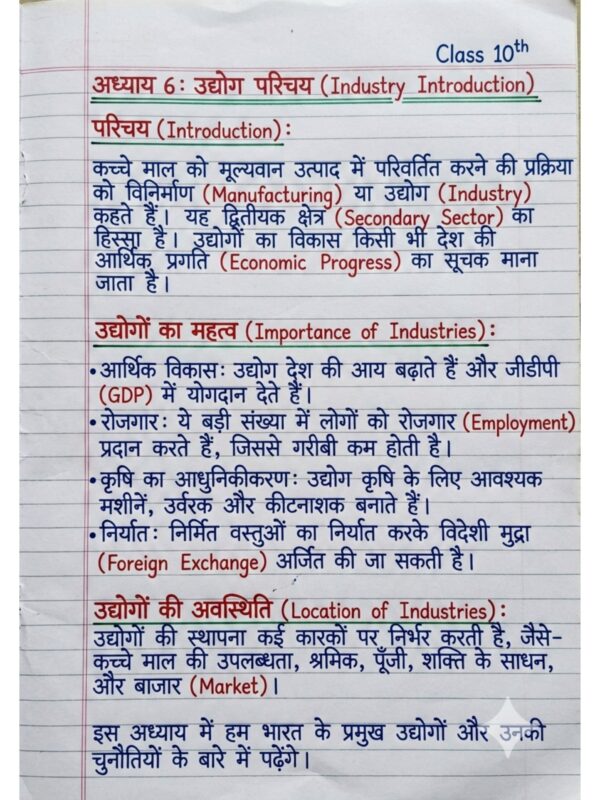 Class 10th
अध्याय 6: उद्योग परिचय (Industry Introduction)
परिचय (Introduction):
कच्चे माल को मूल्यवान उत्पाद में परिवर्तित करने की प्रक्रिया
को विनिर्माण (Manufacturing) या उद्योग (Industry)
कहते हैं। यह द्वितीयक क्षेत्र (Secondary Sector) का
हिस्सा है। उद्योगों का विकास किसी भी देश की
आर्थिक प्रगति (Economic Progress) का सूचक माना
जाता है।
उद्योगों का महत्व (Importance of Industries):
•आर्थिक विकास: उद्योग देश की आय बढ़ाते हैं और जीडीपी
(GDP) में योगदान देते हैं।
•रोजगार: ये बड़ी संख्या में लोगों को रोजगार (Employment)
प्रदान करते हैं, जिससे गरीबी कम होती है।
•कृषि का आधुनिकीकरण: उद्योग कृषि के लिए आवश्यक
मशीनें, उर्वरक और कीटनाशक बनाते हैं।
•निर्यात: निर्मित वस्तुओं का निर्यात करके विदेशी मुद्रा
(Foreign Exchange) अर्जित की जा सकती है।
उद्योगों की अवस्थिति (Location of Industries):
उद्योगों की स्थापना कई कारकों पर निर्भर करती है, जैसे-
कच्चे माल की उपलब्धता, श्रमिक, पूँजी, शक्ति के साधन,
और बाजार (Market)।
इस अध्याय में हम भारत के प्रमुख उद्योगों और उनकी
चुनौतियों के बारे में पढ़ेंगे।